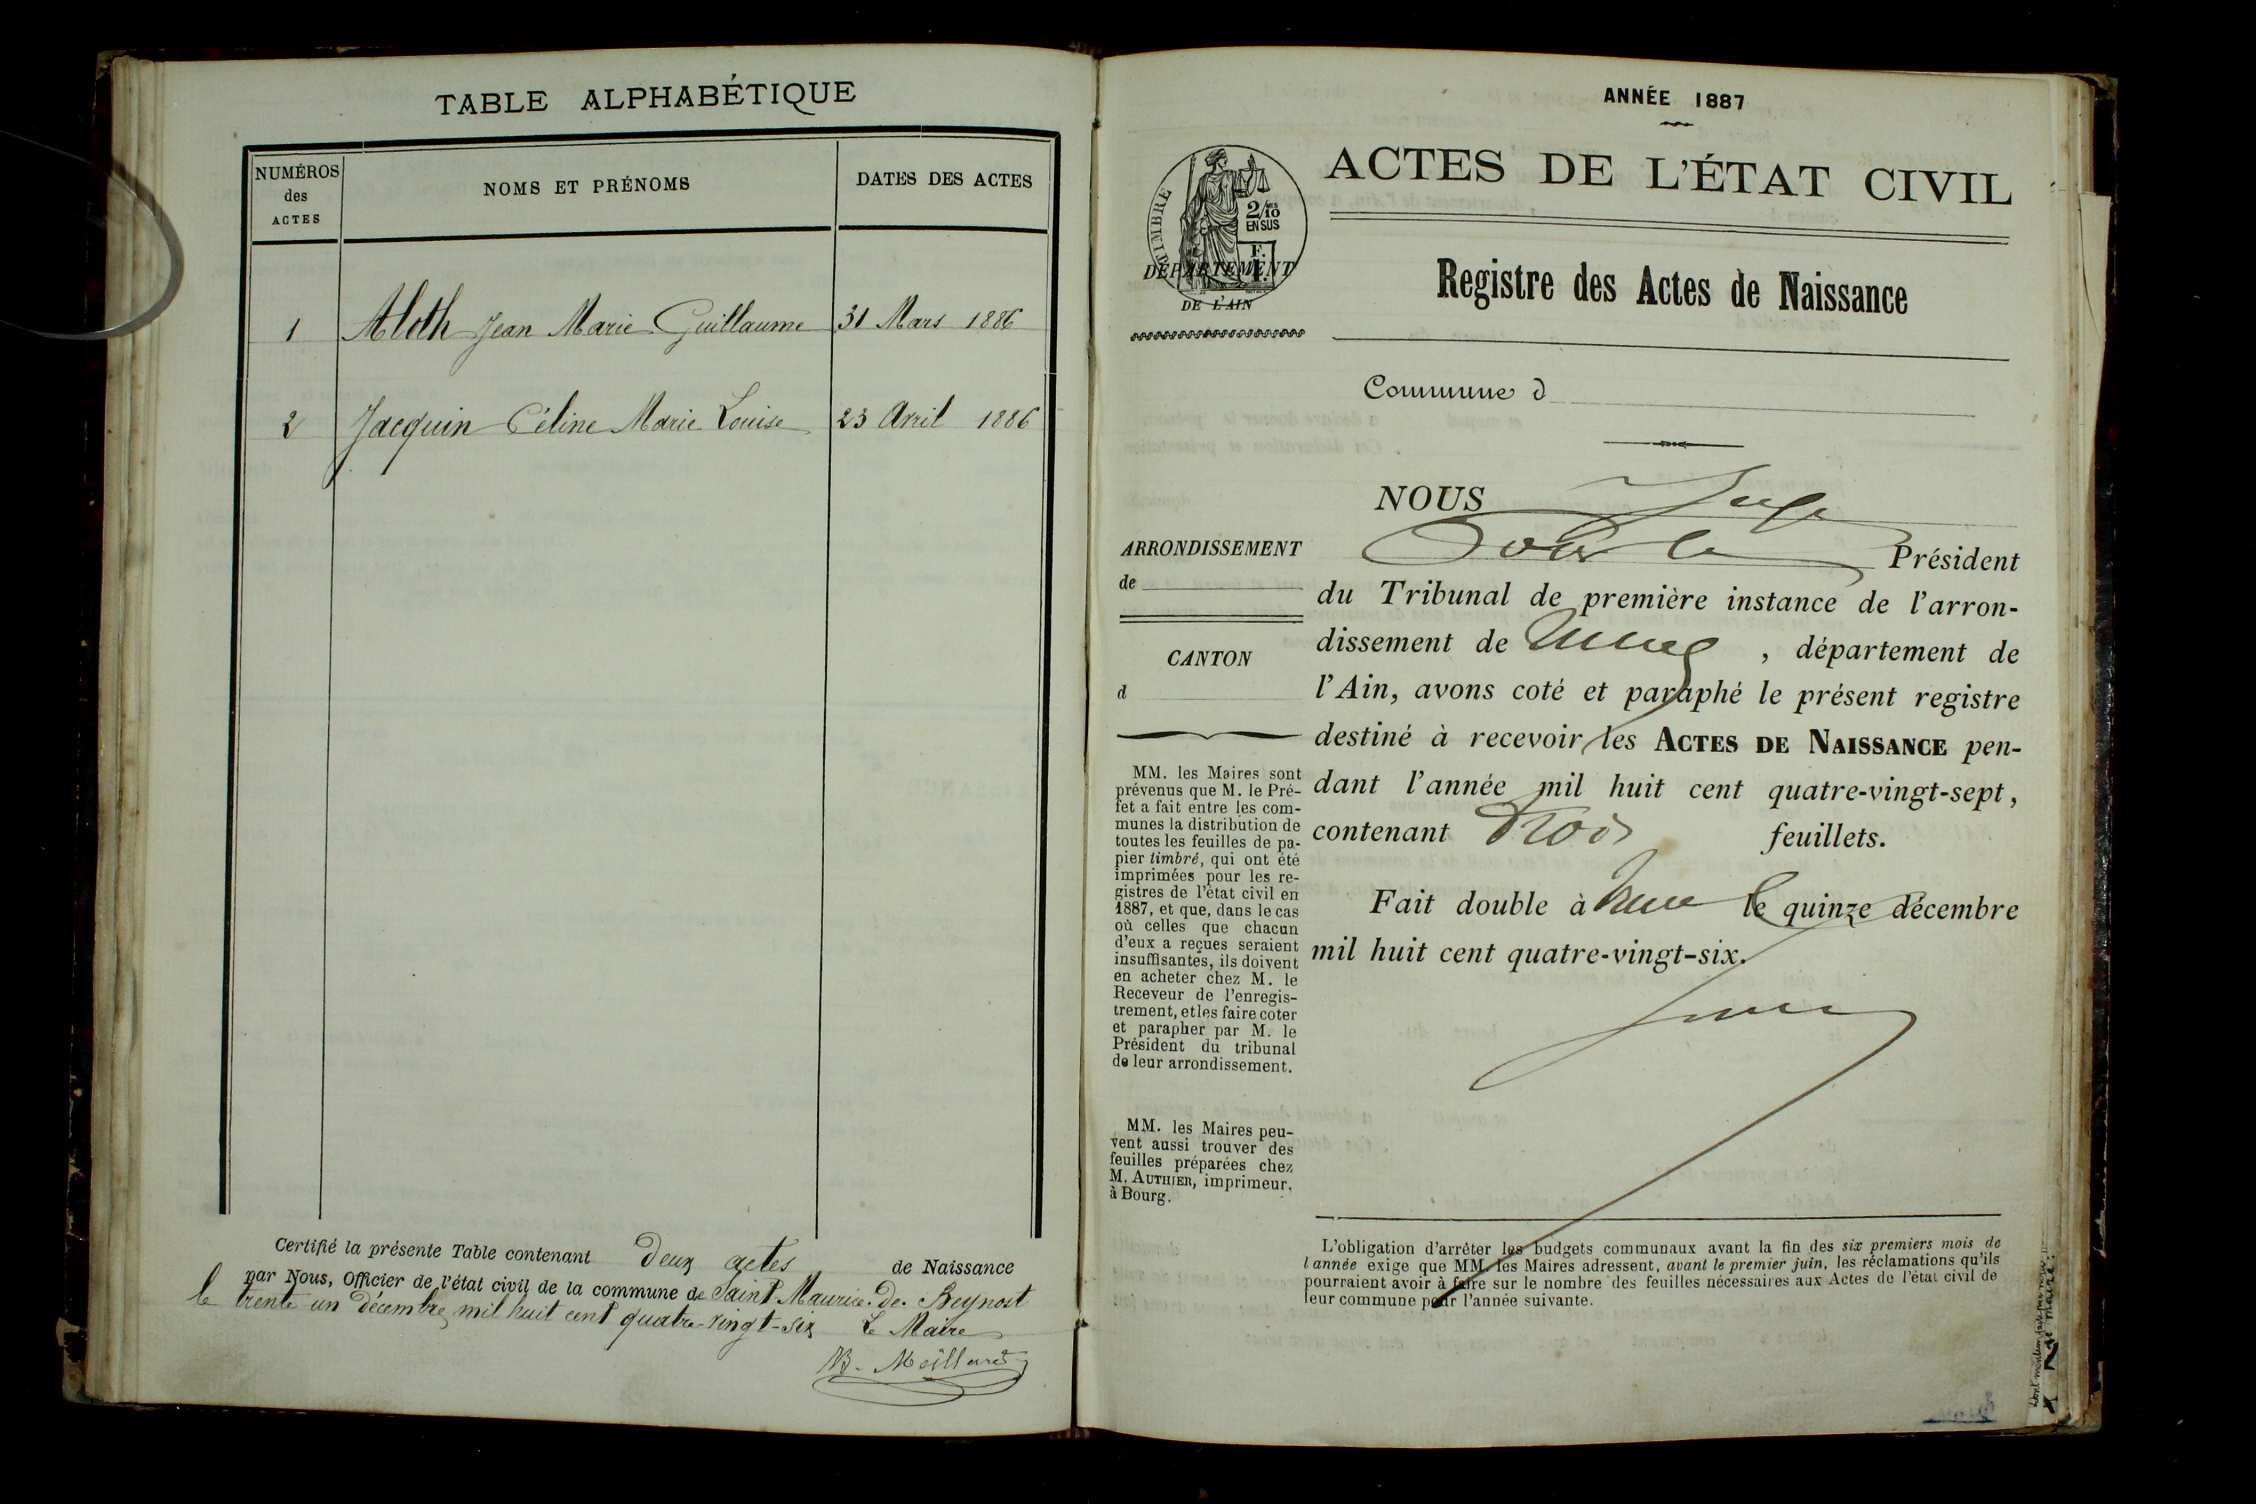 TABLE ALPHABÉTIQUE
NUMÉROS des ACTES
NOMS ET PRÉNOMS
DATES DES ACTES
1 Aloth Jean Marie Guillaume 31 Mars 1886
2 Jacquin Céline Marie Louise 23 Avril 1886
Certifié la présente Table contenant deux actes de Naissance
par Nous, Officier de l'état civil de la commune de Saint Maurice. de. Beynost
le trente un décembre mil huit cent quatre-vingt-six Le Maire
ANNÉE 1887
ACTES DE L'ÉTAT CIVIL
TIMBRE
2/10 EN SUS
DÉPARTEMENT
DE L'AIN
Registre des Actes de Naissance
Commune d
ARRONDISSEMENT
de
CANTON
d
MM. les Maires sont
prévenus que M. le Pré-
fet a fait entre les com-
munes la distribution de
toutes les feuilles de pa-
pier timbré, qui ont été
imprimées pour les re-
gistres de l'état civil en
1887, et que, dans le cas
où celles que chacun
d'eux a reçues seraient
insuffisantes, ils doivent
en acheter chez M. le
Receveur de l'enregis-
trement, et les faire coter
et parapher par M. le
Président du tribunal
de leur arrondissement.
MM. les Maires peu-
vent aussi trouver des
feuilles préparées chez
M. AUTHIER, imprimeur,
à Bourg.
NOUS Juge
Président
du Tribunal de première instance de l'arron-
dissement de , département de
l'Ain, avons coté et paraphé le présent registre
destiné à recevoir les ACTES DE NAISSANCE pen-
dant l'année mil huit cent quatre-vingt-sept,
contenant trois feuillets.
Fait double à le quinze décembre
mil huit cent quatre-vingt-six.
L'obligation d'arrêter les budgets communaux avant la fin des six premiers mois de
l'année exige que MM. les Maires adressent, avant le premier juin, les réclamations qu'ils
pourraient avoir à faire sur le nombre des feuilles nécessaires aux Actes de l'état civil de
leur commune pour l'année suivante.